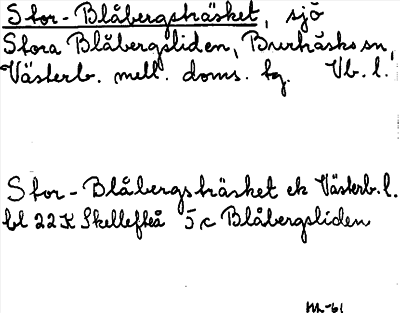 Stor-Blåbergsträsket, sjö
Stora Blåbergsliden, Burträsks sn,
Västerb. mell. doms. tg. Vb. l.
Stor-Blåbergsträsket ek Västerb. l.
bl 22 K Skellefteå 5 c Blåbergsliden